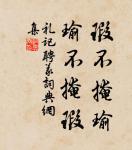 瑕不掩瑜
瑜不掩瑕
礼记聘义词典网
集